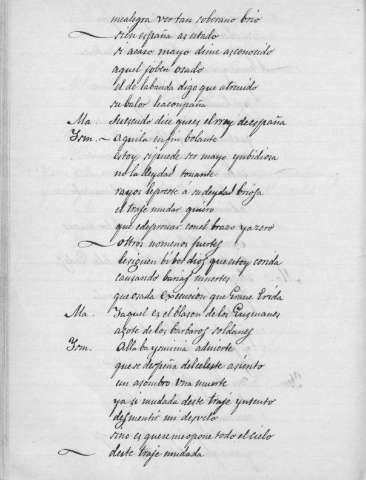 mealegra ver tan soberano brio
si en españa as estado
si acaso mayo dime as conosido
aquel joben osado
el de la banda digo que atrevido
su balor le acompaña
Ma. Su escudo dice qu es el rrey de españa
Ism. Aguila en fin bolante
estoy si puede ser mayo ynbidiosa
no la deydad tonante
rayos le preste á su deydad briosa
el traje mudar quiero
que e de provar con el brazo y azero
otros no menos fuertes
le siguen bibe dios que estoy
causando barias muertes
que osada execucion que
Ma. Y aquel es el blason de los Gusmanes
azote de los barbaros soldanes
Ism. Alla ba ysmenia advierte
que se despeña del celeste asiento
un asombro una muerte
ya se mudada deste traje yntento
desmentir mi desvelo
sino es que se me opone todo el cielo
deste traje mudada